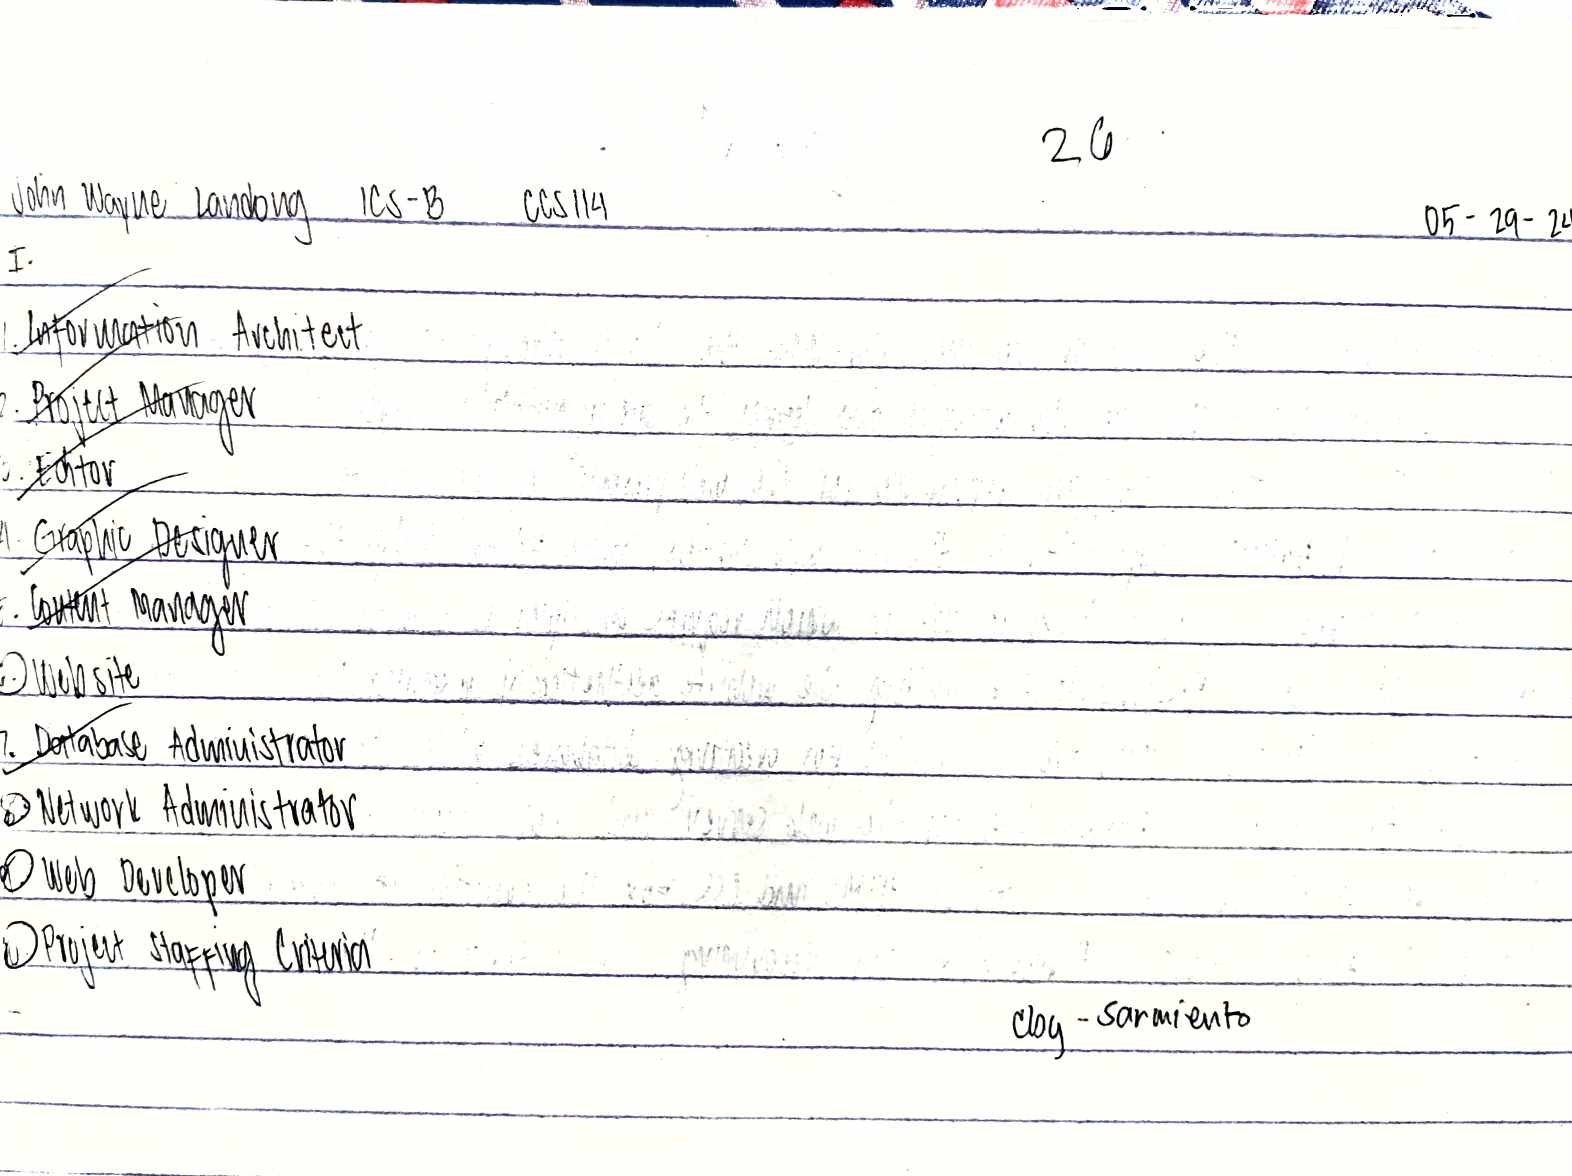 26
John Wayne Landong ICS-B CCS114 05-29-24
I.
1. Information Architect
2. Project Manager
3. Editor
4. Graphic Designer
5. Content Manager
6. Website
7. Database Administrator
8. Network Administrator
9. Web Developer
10. Project Staffing Criteria
Cloy - Sarmiento